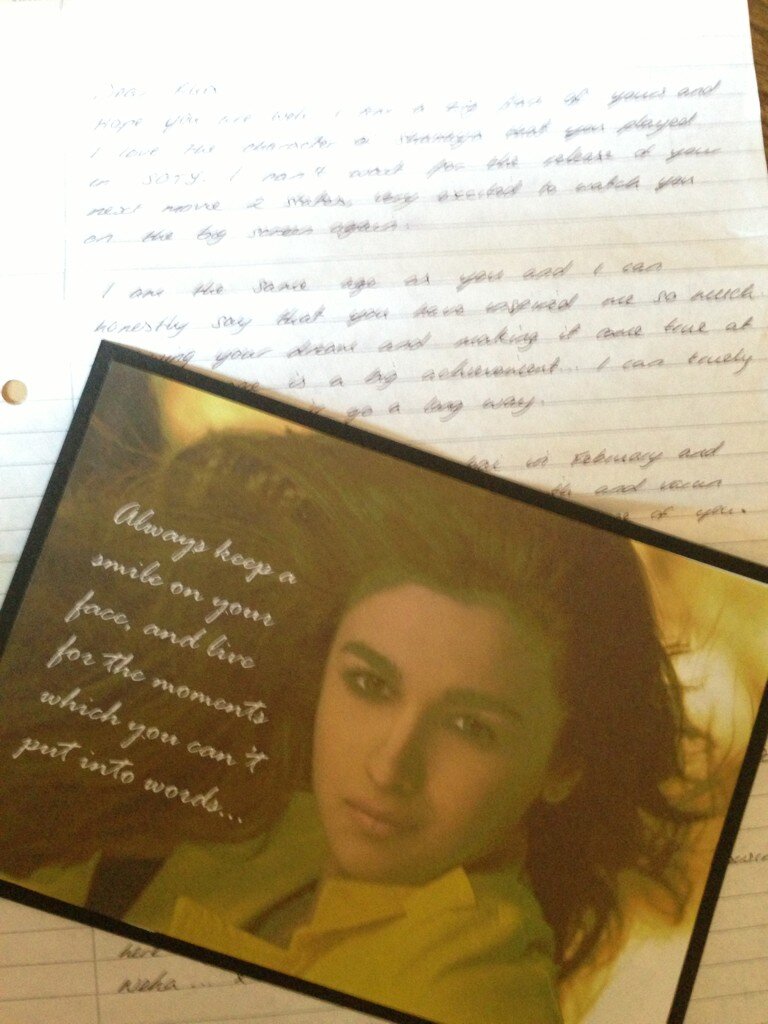 Dear
Hope you are well I am a big fan of yours and
I love the character of shanaya that you played
in SOTY. I can't wait for the release of your
next movie 2 states, very excited to watch you
on the big screen again.
I am the same age as you and I can
honestly say that you have inspired me so much.
your dream and making it come true at
is a big achievement... I can truely
go a long way.
in February and
and
of you.
Always keep a
smile on your
face, and live
for the moments
which you can't
put into words...
here